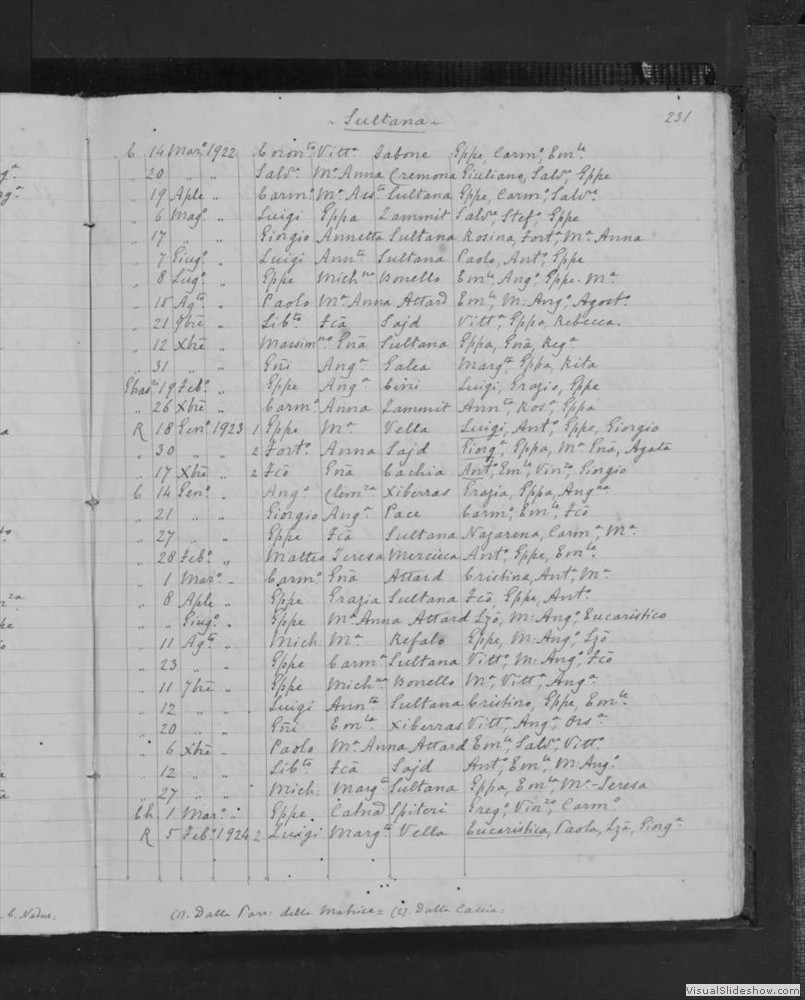 ~ Sultana ~ 231
C 14 Marzo 1922 Coronta Vitta Tabone Eppe, Carmo, Emle
" 20 " " Salvre Ma Anna Cremona Giuliano, Salvre, Eppe
" 19 Aple " Carmo Ma Assta Sultana Eppe, Carmo, Salvre
" 6 Mago " Luigi Eppa Zammit Salvre, Stefo, Eppe
" 17 " " Giorgio Annetta Sultana Rosina, Forto, Ma Anna
" 7 Giugo " Luigi Annta Sultana Paolo, Anto, Eppe
" 8 Lugo " Eppe Michna Bonello Emle, Ango, Eppe-Ma
" 15 Agto " Paolo Ma Anna Attard Emle, M: Ango, Agosto
" 21 9bre " Libto Fca Sajd Vitta, Eppa, Rebecca.
" 12 Xbre " Massimno Gna Sultana Eppa, Gna, Rega
" 31 " " Gni Anga Galea Margta, Eppa, Rita
Ghasi 19 Febo " Eppe Anga Cini Luigi, Grazio, Eppe
" 26 Xbre " Carmo Anna Zammit Annta, Rosa, Eppa
R 18 Geno 1923 1 Eppe Ma Vella Luigi, Anto, Eppe, Giorgio
" 30 " " 2 Forto Anna Sajd Giorga, Eppa, Ma Gna, Agata
" 17 Xbre " 2 Fco Gna Cachia Anto, Emle, Vinzo, Giorgio
C 14 Geno " Ango Clemza Xiberras Grazia, Eppa, Angna
" 21 " " Giorgio Anga Pace Carmo, Emle, Fco
" 27 " " Eppe Fca Sultana Nazarena, Carma, Ma
" 28 Febo " Matteo Teresa Mercieca Anto, Eppe, Emle
" 1 Maro " Carmo Gna Attard Cristina, Anta, Ma
" 8 Aple " Eppe Grazia Sultana Fco, Eppe, Anto
" " Giugo " Eppe Ma Anna Attard Lzo, M: Ango, Eucaristico
" 11 Agto " Mich: Ma Refalo Eppe, M: Ango, Lzo
" 23 " " Eppe Carma Sultana Vitto, M: Ango, Fco
" 11 7bre " Eppe Michna Bonello Ma, Vitta, Anga
" 12 " " Luigi Annta Sultana Cristino, Eppe, Emle
" 20 " " Gni Emla Xiberras Vitta, Anga, Orsa
" 6 Xbre " Paolo Ma Anna Attard Emle, Salvre, Vitto
" 12 " " Libto Fca Sajd Anto, Emle, M: Ango
" 27 " " Mich: Marga Sultana Eppa, Emla, Ma-Teresa
Ch 1 Maro " Eppe Catna Spiteri Grego, Vinzo, Carmo
R 5 Febo 1924 2 Luigi Marga Vella Eucaristica, Paola, Lza, Giorga
C. Nadur.
(1). Dalla Parr: della Matrice = (2). Dalla Caccia.
VisualSlideshow.com